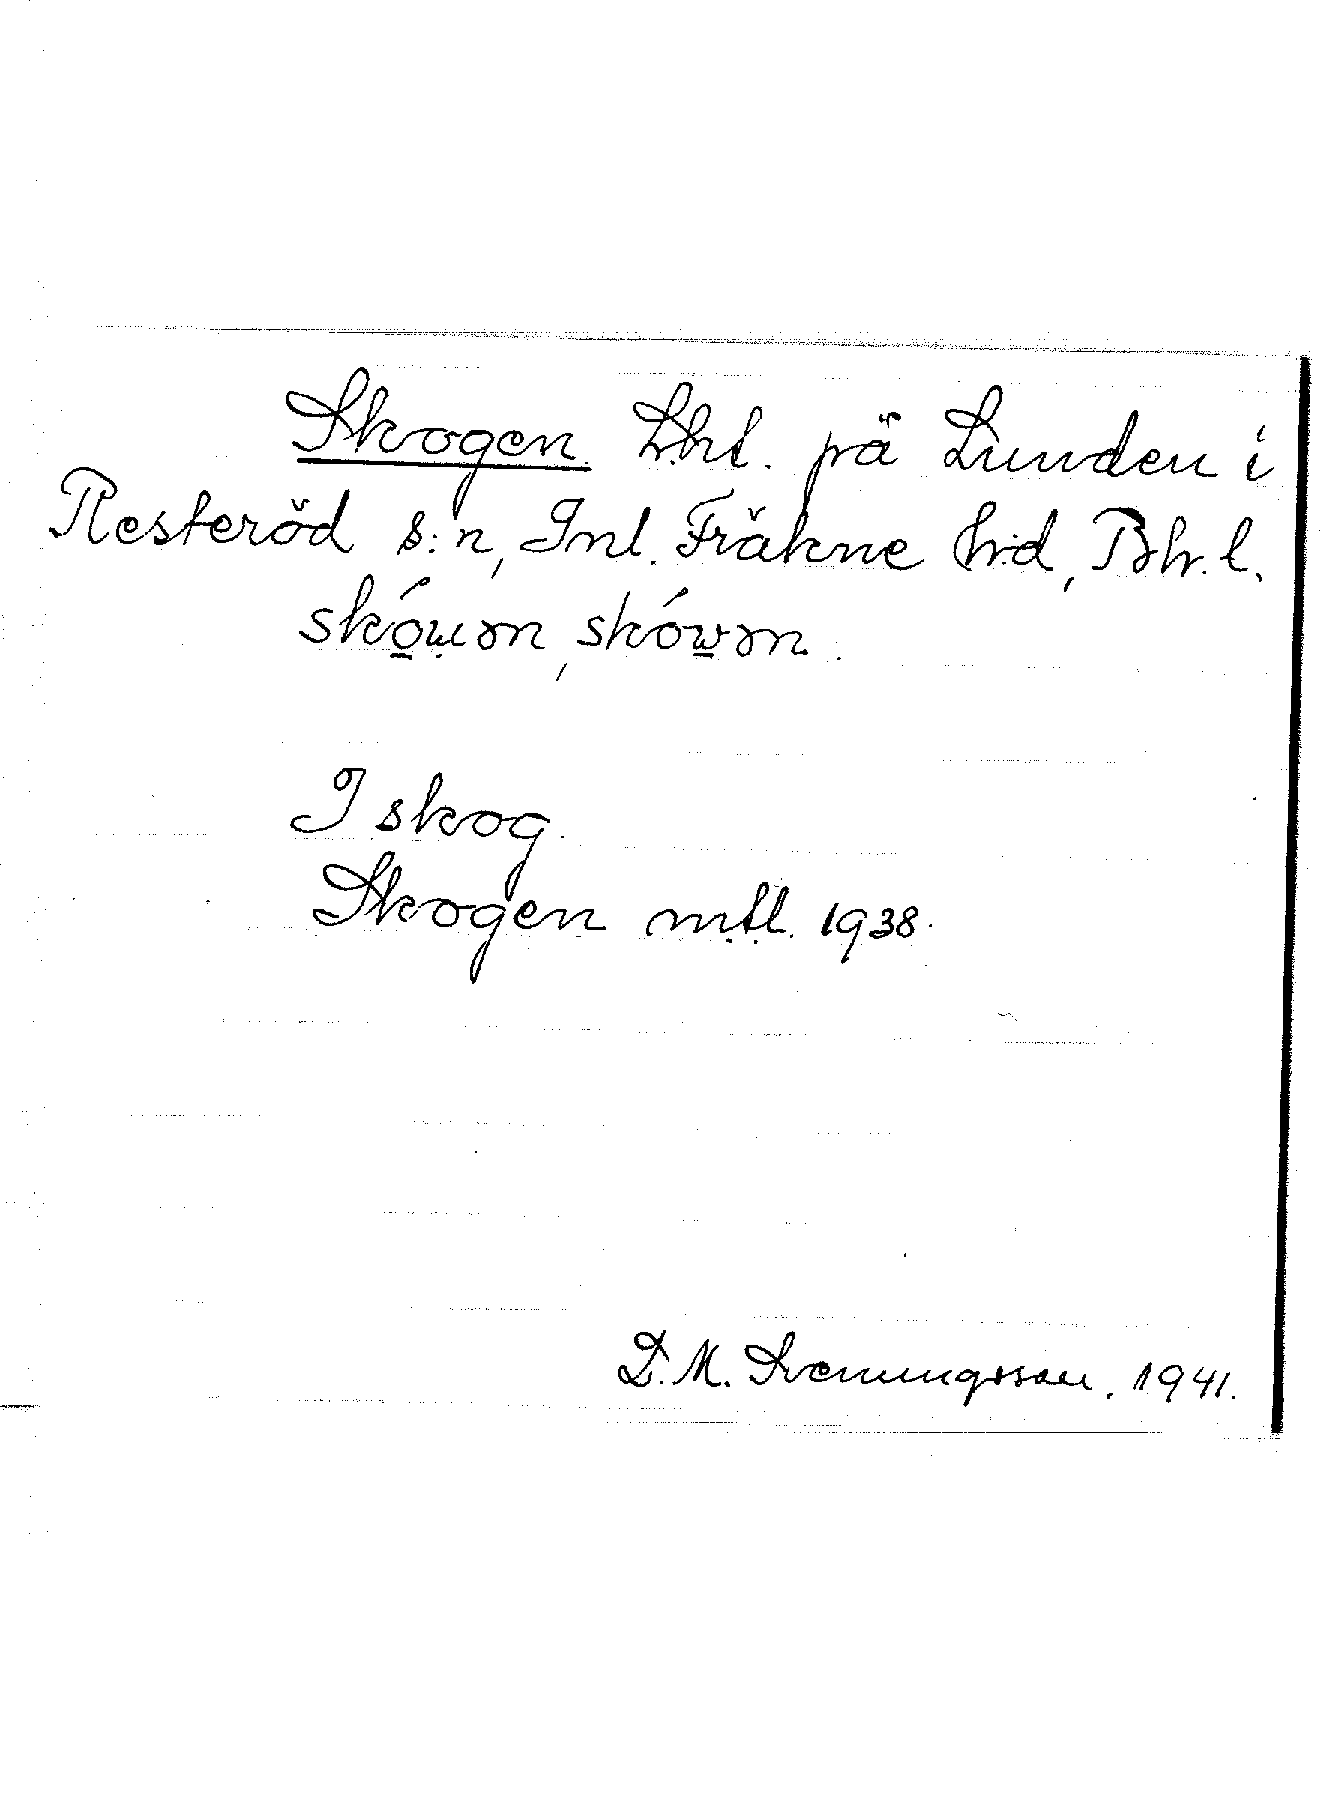 Skogen. Lht. på Lunden i
Resteröd s:n, Inl. Fräkne h:d, Bh. l.
skówən, skówən.
I skog.
Skogen mtl. 1938.
D. M. 1941.